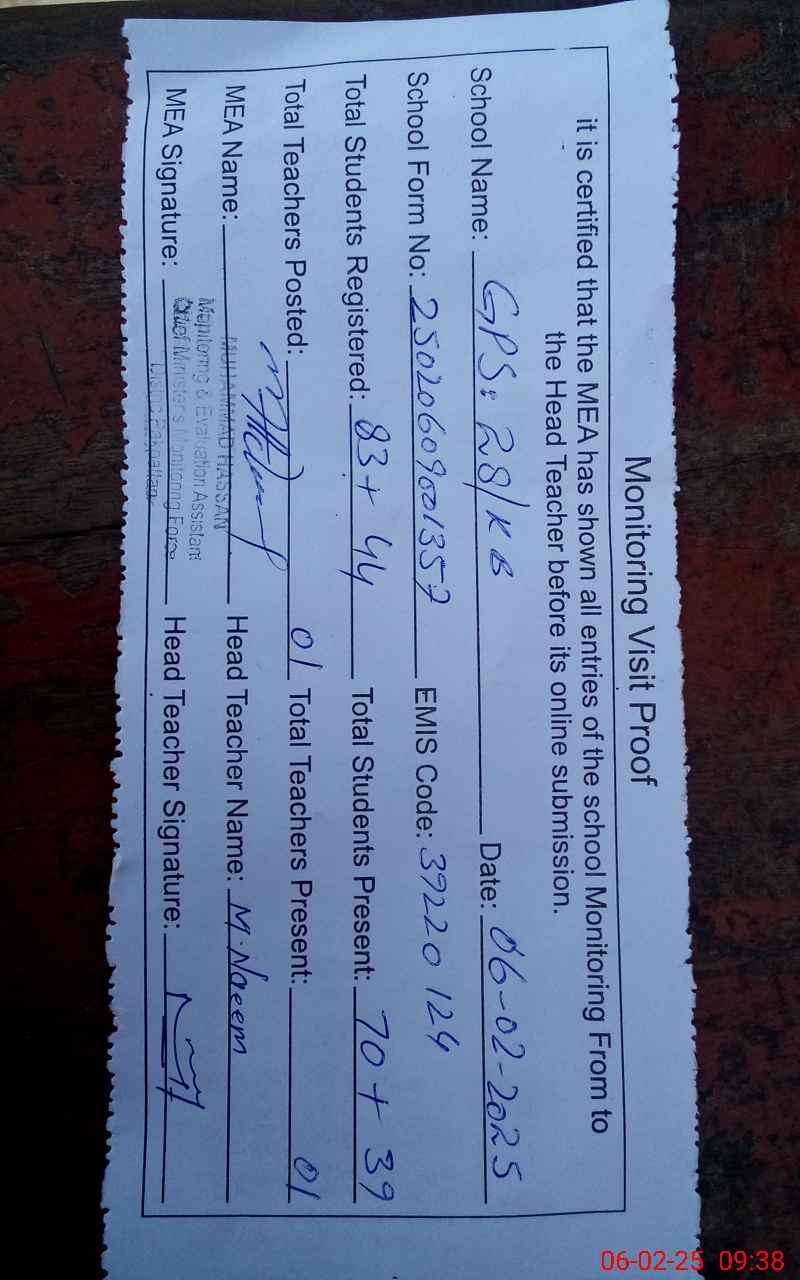 Monitoring Visit Proof
it is certified that the MEA has shown all entries of the school Monitoring From to
the Head Teacher before its online submission.
School Name: GPS: 28/KB Date: 06-02-2025
School Form No: 25020609001357 EMIS Code: 39220124
Total Students Registered: 83+44 Total Students Present: 70+39
Total Teachers Posted: 01 Total Teachers Present: 01
MEA Name: MUHAMMAD HASSAN Head Teacher Name: M. Naeem
Monitoring & Evaluation Assistant
MEA Signature: Chief Minister's Monitoring Force Head Teacher Signature:
District Pakpattan
06-02-25 09:38